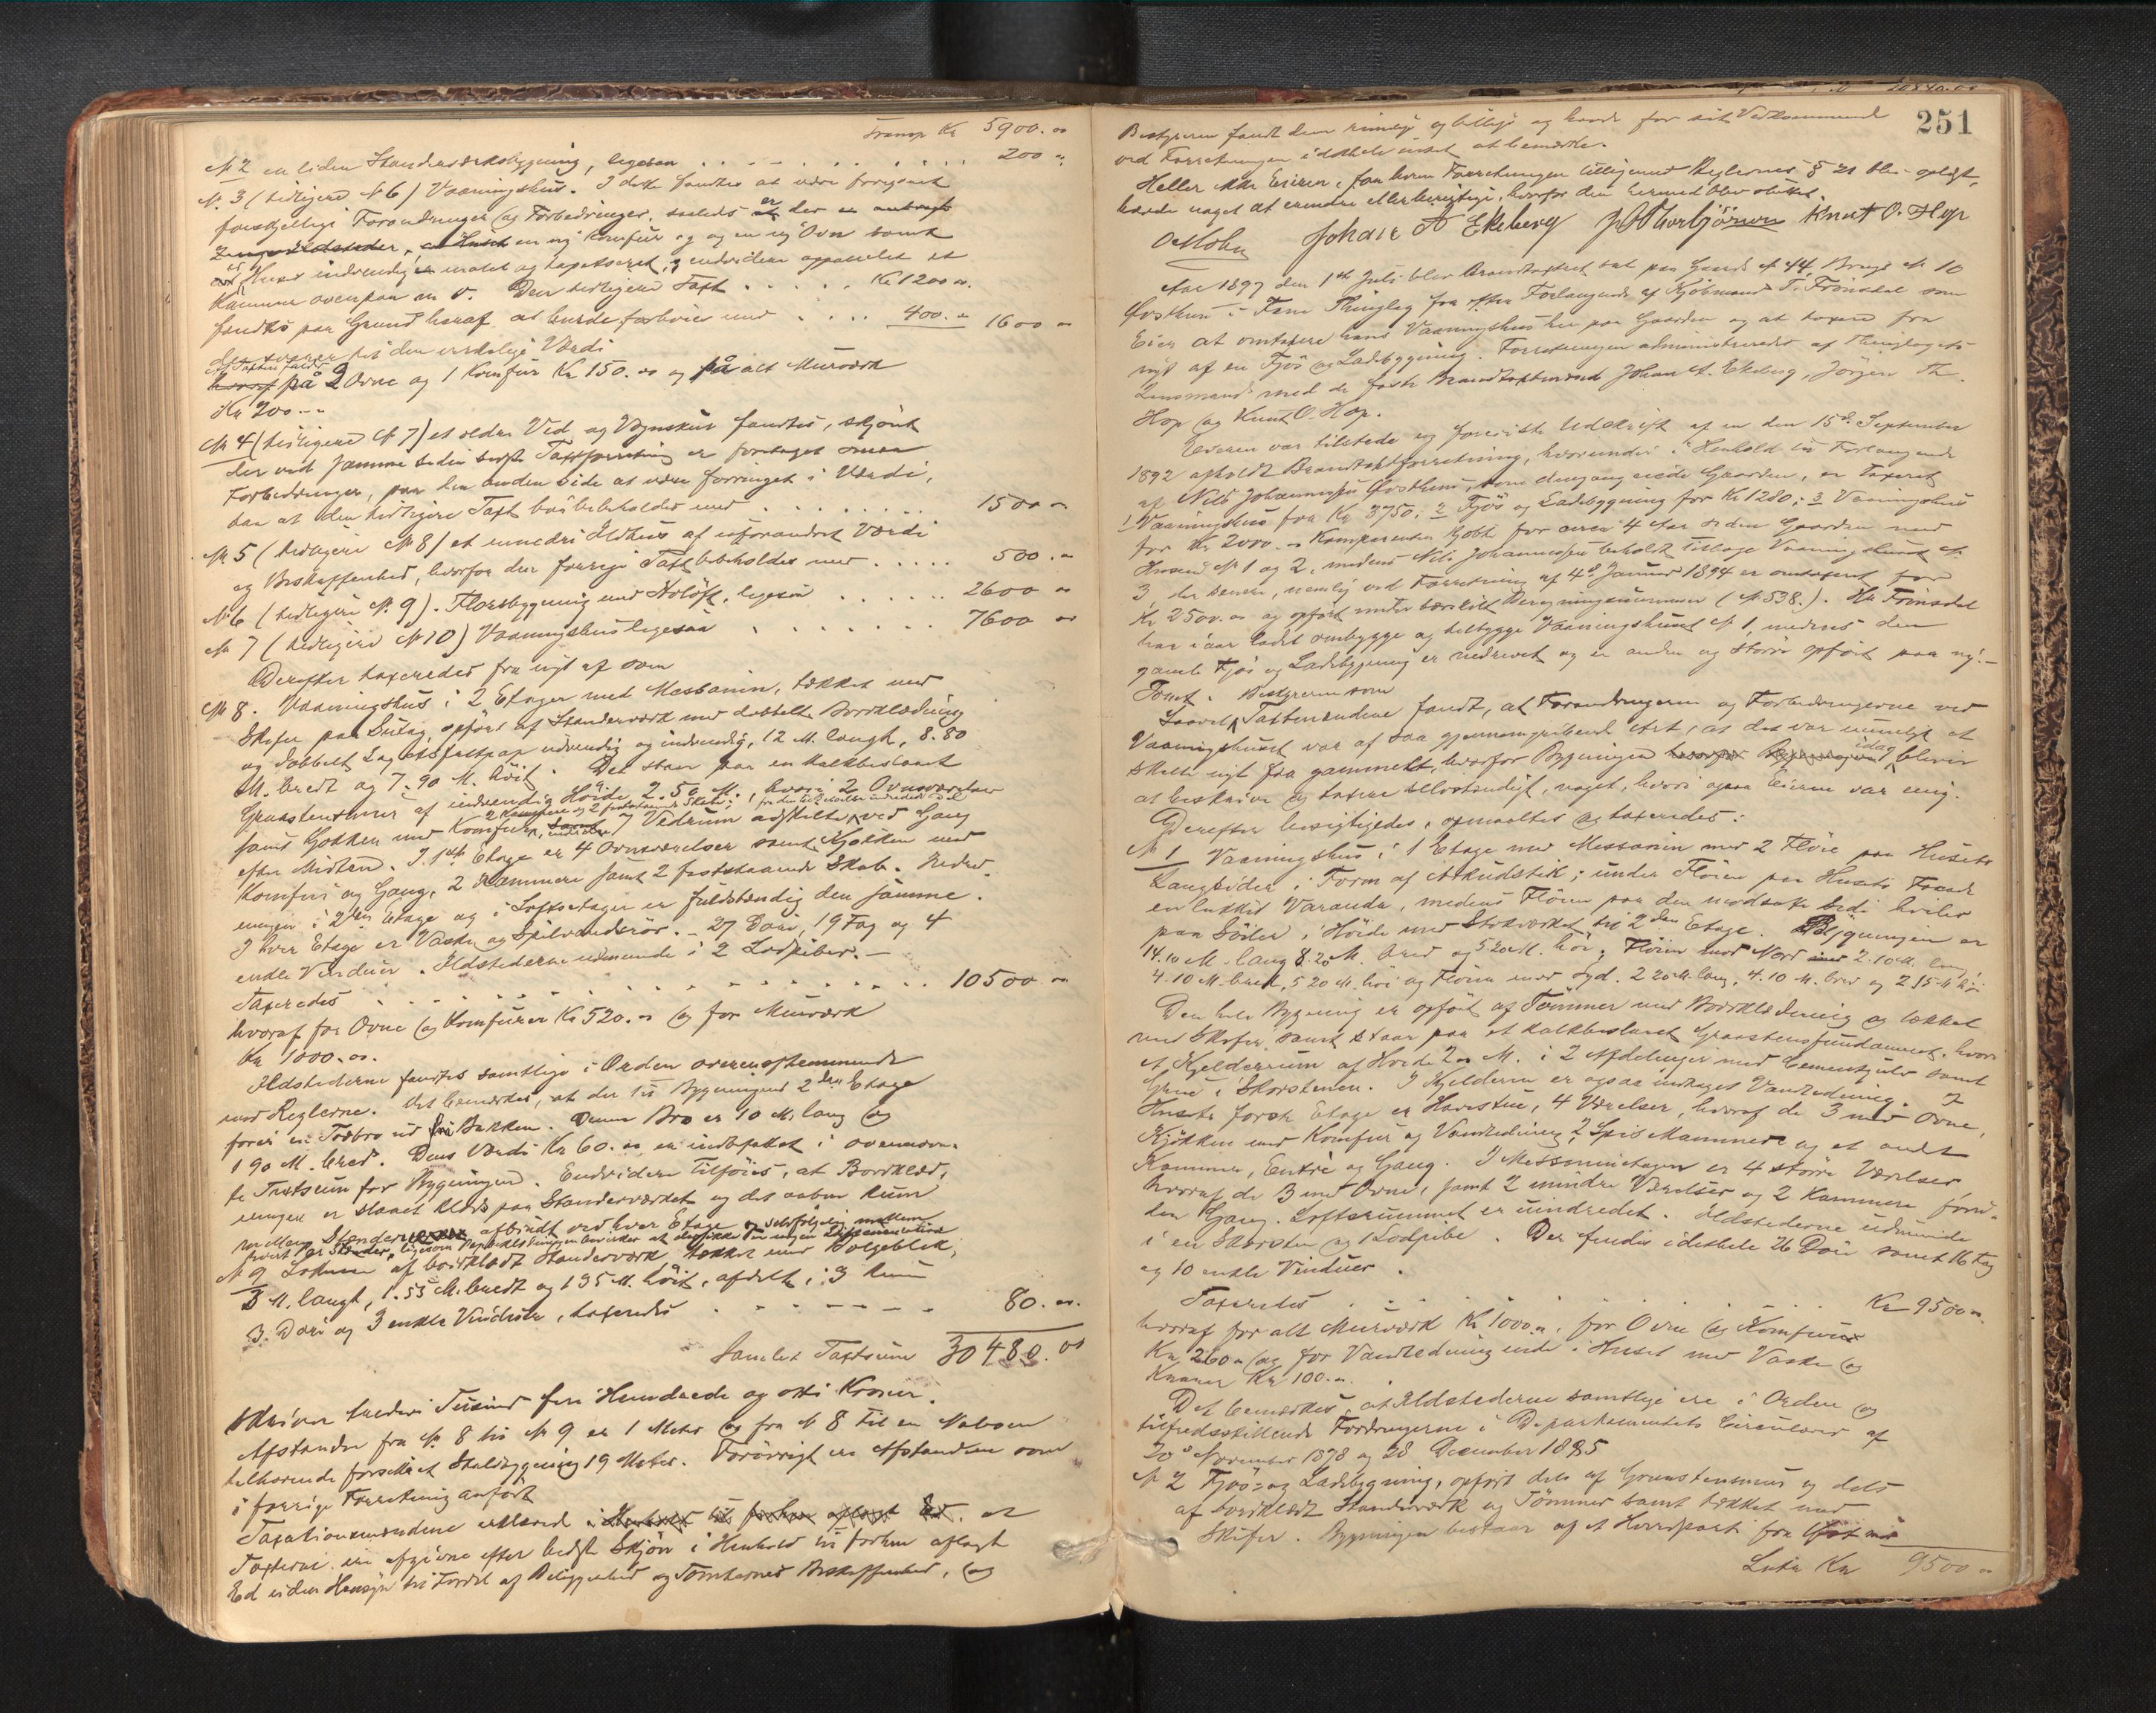 Transp Kr 5900.00
№ 2 en liden Stenderværksbygning, ligesaa . . . . . . . 200 "
№ 3 (tidligere № 6) Vaaningshus. I dette fandtes at være foregaaet
forskjellige Forandringer og Forbedringer, saaledes er der
en ny Komfur og en ny Ovn samt
Huset indvendig malet og tapetseret, endvidere oppanelet et
Kammer ovenpaa m. v. Den tidligere Taxt . . . . . Kr 1200.00
fandtes paa Grund heraf at burde forhøies med . . . . 400.00 1600 00
der svarer til den virkelige Værdi
Af Taxten falder på 2 Ovne og 1 Komfur Kr 150.00 og på alt Murværk
Kr 200.--
№ 4 (tidligere № 7) et ældre Ved og Vognskur fandtes, skjønt
der ved samme siden sidste Taxtforretning er foretaget
Forbedringer, paa den anden Side at være forringet i Værdi,
saa at den tidligere Taxt bør beholdes med . . . . . . . . 1500 00
№ 5 (tidligere № 8) et Ildhus af uforandret Værdi
og Beskaffenhed, hvorfor den forrige Taxt beholdes med . . . . . 500.00
№ 6 (tidligere № 9). Florsbygning med Høloft, ligesaa . . . . . . 2600 00
№ 7 (tidligere № 10) Vaaningshus ligesaa . . . . . . . 7600 00
Derefter taxeredes fra nyt af som
№ 8. Vaaningshus i 2 Etager med Messanin, tækket med
Skifer paa Sutag, opført af Stenderværk med dobbelte Bordklædning
og dobbelt Lag Asfaltpap udvendig og indvendig, 12 M. langt, 8.80
M. bredt og 7.90 M. høit. Det staar paa en kalkbeslaaet
Graastensmur af indvendig Høide 2.50 M., hvori 2 Ovnsværelser
samt Kjøkken med Komfur, 2 Kammere og 2 faststaaende Skabe; Vedrum adskilte ved Gang
efter Midten. I 1ste Etage er 4 Ovnsværelser samt Kjøkken med
Komfur og Gang, 2 Kammere samt 2 faststaaende Skab. Indred-
ningen i 2den Etage og i Loftsetagen er fuldstændig den samme.
I hver Etage er Vaske og Spilvandsrør. - 27 Døre, 19 Fag og 4
enkle Vinduer. Ildstederne udmunde i 2 Lodpiber. -
Taxeredes . . . . . . . . . . . . . . . 10500 00
hvoraf for Ovne og Komfurer Kr 520.00 og for Murværk
Kr 1000.00.
Ildstederne fandtes samtlige i Orden overensstemmende
med Reglerne. Det bemærkes, at der til Bygningens 2den Etage
fører en Træbro ud fra Bakken. Denne Bro er 10 M. lang og
1 90 M. bred. Dens Værdi Kr 60.00 er indbefattet i ovennævn-
te Taxtsum for Bygningen. Endvidere tilføies, at Bordklæd-
ningen er slaaet klods paa Stenderværket og det aabne Rum
mellem Stenderne afbrudt ved hver Etage og selvfølgelig mellem
hvert Par Stender, ligesom
№ 9 Lokum af bordklædt Stenderværk tækket med Bølgeblik,
3 M. langt, 1.55 M. bredt og 1 95 M. høit, afdelt i 3 Rum
3 Døre og 3 enkle Vinduer, taxeredes . . . . . . . 80.00.
Samlet Taxtsum 30480.00
Skriver tredive Tusind fire Hundrede og otti Kroner.
Afstanden fra № 8 til № 9 er 1 Meter og fra № 8 til en Naboen
tilhørende Staldbygning 19 Meter. Forøvrigt ere Afstandene som
i forrige Forretning anført
Taxationsmændene erklæred at
Taxterne ere afgivne efter bedste Skjøn i Henhold til forhen aflagt
Ed uden Hensyn til Fordel af Beliggenhed og Tomternes Beskaffenhed, og
251
Bestyreren fandt dem rimelige og billige og havde for sit Vedkommende
ved Forretningen idethele intet at bemærke.
Heller ikke Eieren, for hvem Forretningen tilligemed Reglernes § 21 blev oplæst,
havde noget at erindre eller berigtige, hvorfor den hermed blev sluttet.
Johan A Ekeberg J. Thorbjörnsen Knut O. Hop
Aar 1897 den 1ste Juli blev Brandtaxtret sat paa Gaards № 44, Brugs № 10
Øvsthun i Fane Thinglag for efter Forlangende af Kjøbmand T. Frønsdal som
Eier at omtaxere hans Vaaningshus her paa Gaarden og at taxere fra
nyt af en Fjøs og Ladebygning. Forretningen administreredes af Thinglagets
Lensmand med de faste Brandtaxtmænd Johan A. Ekeberg, Jørgen Th.
Hop og Knut O. Hop.
Eieren var tilstede og foreviste Udskrift af en den 15de September
1892 afholdt Brandtaxtforretning, hvorunder i Henhold til Forlangende
af Nils Johannesen Øvsthun, som dengang eiede Gaarden, er Taxeret
1 Vaaningshus for Kr 3750; 2 Fjøs og Ladebygning for Kr 1280; 3 Vaaningshus
for Kr 2000.- Komparenten kjøbte for circa 4 Aar siden Gaarden med
Husene № 1 og 2, medens Nils Johannessen beholdt tilbage Vaaningshuset №
3, der senere, nemlig ved Forretning af 4de Januar 1894 er omtaxeret for
Kr 2500.00 og opført under særskilt Beregningsnummer (№ 538.). Hr Frønsdal
har iaar ladet ombygge og tilbygge Vaaningshuset № 1, medens den
gamle Fjøs og Ladebygning er nedrevet og en anden og større opført paa ny
Tomt.
Saavel Bestyreren som Taxtmændene fandt, at Forandringerne og Forbedringerne ved
Vaaningshuset var af saa gjennemgribende Art, at det var umuligt at
skille nyt fra gammelt, hvorfor Bygningen idag bliver
at beskrive og taxere selvstændigt, noget, hvori ogsaa Eieren var enig.
Derefter besigtigedes, opmaaltes og taxeredes:
№ 1 Vaaningshus i 1 Etage med Messanin med 2 Fløie paa Husets
Langsider i Form af Arkudstik; under Fløien paa Husets Facade
en lukket Varanda, medens Fløien paa den modsatte Side hviler
paa Søiler i Høide med Stokværket til 2den Etage. Bygningen er
14.10 M. lang 8.20 M. bred og 5 20 M. høi, Fløien mod Nord 2.10 M. lang,
4.10 M. bred, 5 20 M. høi og Fløien mod Syd 2 20 M. lang, 4.10 M. bred og 2 15 M høi
Den hele Bygning er opført af Tømmer med Bordklædning og tækket
med Skifer samt staar paa et kalkbeslaaet Graastensfundament, hvori
et Kjelderrum af Høide 2 00 M. i 2 Afdelinger med Cementgulv samt
Grue i Skorstenen. I Kjelderen er ogsaa indtaget Vandledning. I
Husets første Etage er Havestue, 4 Værelser, hvoraf de 3 med Ovne,
Kjøkken med Komfur og Vandledning, 2 Spiskammer og et andet
Kammer, Entrè og Gang. I Messaninetagen er 4 større Værelser
hvoraf de 3 med Ovne, samt 2 mindre Værelser og 2 Kammere foru-
den Gang. Loftsrummet er uindredet. Ildstederne udmunde
i en Skorsten og 1 Lodpibe. Der findes idethele 26 Døre samt 16 Fag
og 10 enkle Vinduer.
Taxeredes . . . . . . . . . Kr 9500 00
hvoraf for alt Murværk Kr 1000.00, for Ovne og Komfur
Kr 260.00 og for Vandledning inde i Huset med Vaske og
Kraner Kr 100.00.
Det bemærkes, at Ildstederne samtlige ere i Orden og
tilfredsstillende Fordringerne i Departementets Circulærer af
20de November 1878 og 28 December 1885
№ 2 Fjøs og Ladebygning, opført dels af Graastensmur og dels
af bordklædt Stenderværk og Tømmer samt tækket med
Skifer. Bygningen bestaar af et Hovedparti fra Øst mod
Latus Kr 9500 00